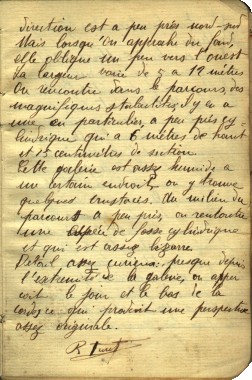 direction est a peu près nord-sud
Mais lorsqu'on approche du fond,
elle oblique un peu vers l'ouest
La largeur varie de 5 a 12 mètres
On rencontre dans le parcours, des
magnifiques stalactites il y en a
une en particulier, a peu près cy-
lindrique qui a 6 mètres de haut
et 15 centimètres de section.
Cette galerie est assez humide a
un certain endroit, on y trouve
quelques crustacés. Au milieu du
parcours a peu près on rencontre
une espèce de fosse cylindrique
et qui est assez bizarre.
Détail assez curieux: presque depuis
l'extremité de la galerie, on aper-
çoit le jour et le bas de la
qui produit une perspective
assez